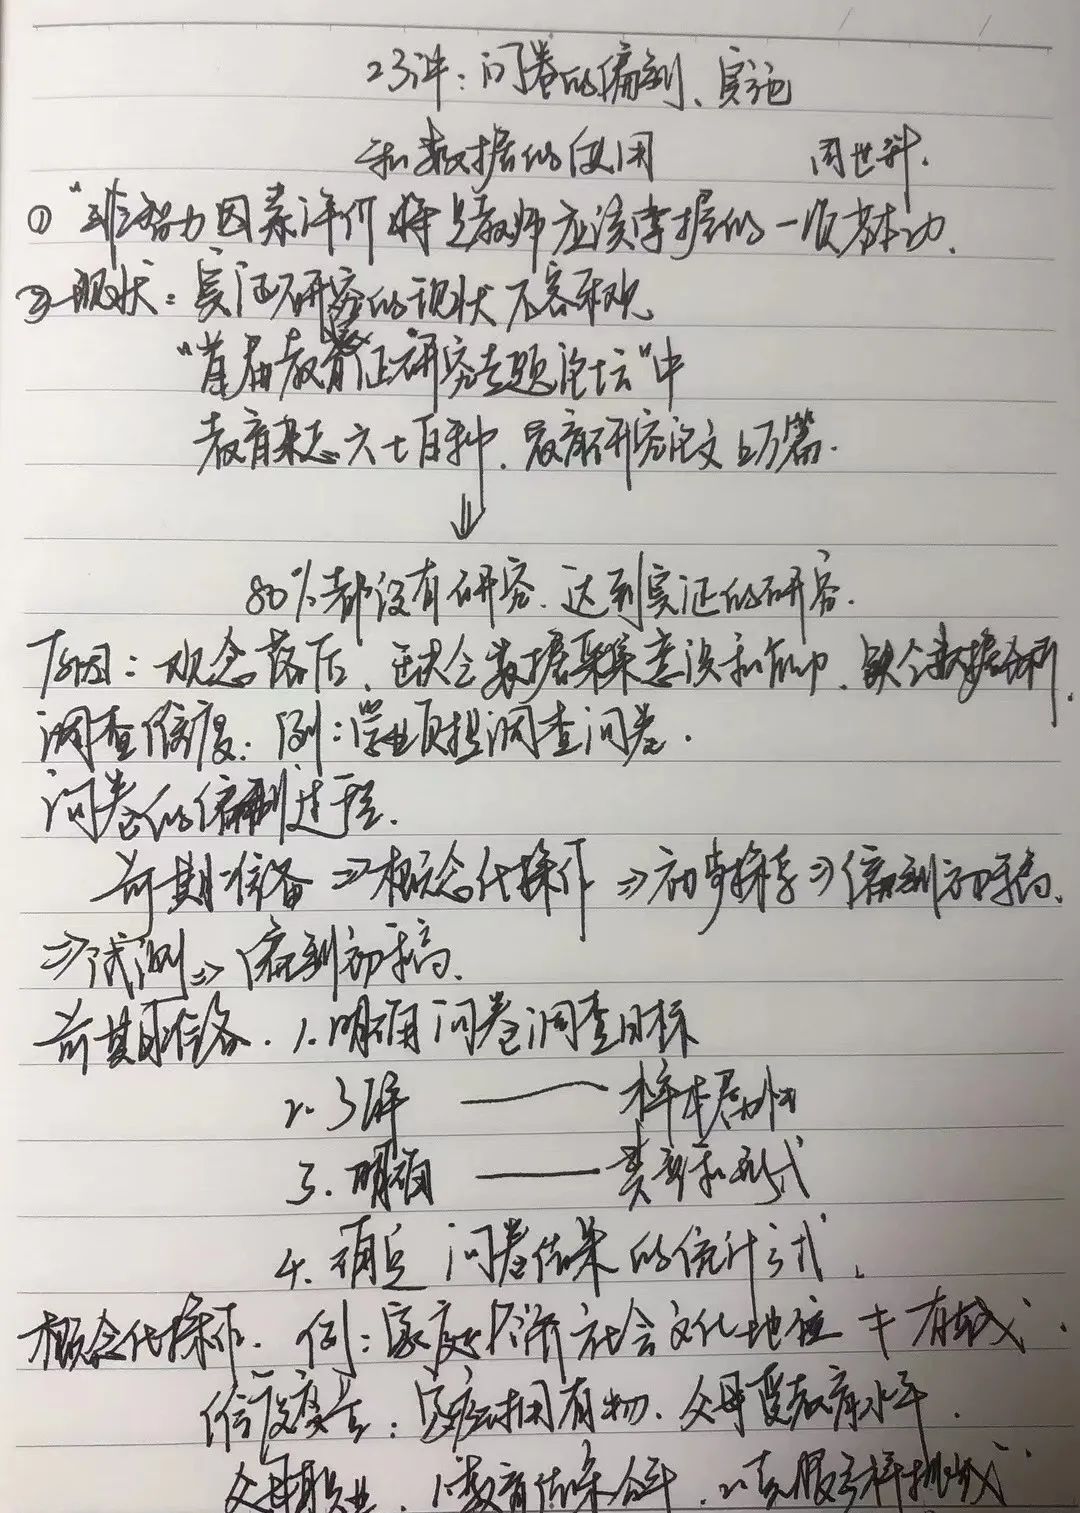 23讲：问卷的编制、实施
和数据的使用 周世科.
① "非智力因素评价将是教师应该掌握的一项基本功.
② 现状：实证研究的现状不容乐观.
"首届教育实证研究专题论坛"中
教育杂志六七百种. 教育研究论文上万篇.
↓
80%都没有研究. 达到实证的研究.
原因：观念落后、缺乏数据采集意识和, 缺乏数据分析.
调查信度：例：学业负担调查问卷.
问卷的编制过程.
前期准备 ⇒ 概念化操作 ⇒ 初步探索 ⇒ 编制初稿.
⇒ 试测 ⇒ 编制初稿.
前期准备. 1. 明确问卷调查目标
2. 了解 —— 样本
3. 明确 —— 类型和形式
4. 确定 问卷结果的统计方式.
概念化操作. 例：家庭经济社会文化地位
：家庭拥有物. 父母受教育水平.
父母职业. 1. 教育结果公平. 2.